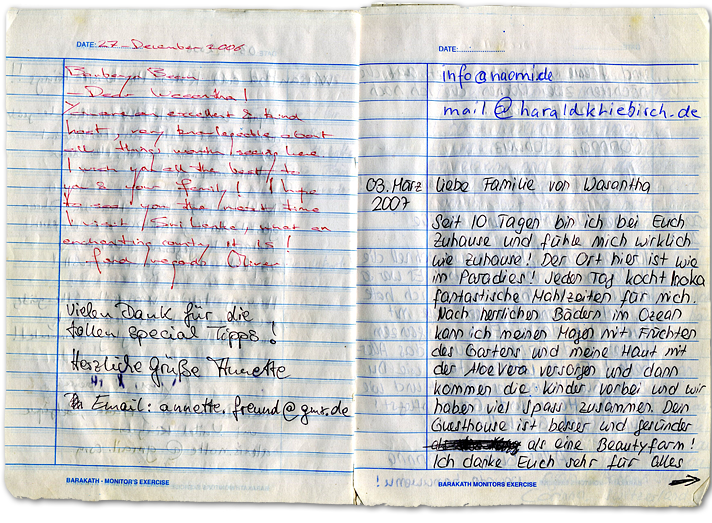 DATE: 27 - December 2006
Dear Wasantha!
You are an excellent & kind
host, very knowledgeable about
all things worth seeing here
I wish you all the best, to
you & your family! I hope
to see you the next time
I visit Sri Lanka, what an
enchanting country it is!
fond regards Oliver
Vielen Dank für die
tollen special Tipps!
Herzliche Grüße Annette
Email: annette.freund@gmx.de
BARAKATH - MONITOR'S EXERCISE
DATE:
info@naomi.de
mail@harald.khiebirsch.de
03. März Liebe Familie von Wasantha
2007
Seit 10 Tagen bin ich bei Euch
Zuhause und fühle mich wirklich
wie zuhause! Der Ort hier ist wie
im Paradies! Jeden Tag kocht Inoka
fantastische Mahlzeiten für mich.
Nach herrlichen Bädern im Ozean
kann ich meinen Magen mit Früchten
des Gartens und meine Haut mit
der Aloe Vera versorgen und dann
kommen die Kinder vorbei und wir
haben viel Spass zusammen. Dein
Guesthouse ist besser und gesünder
als eine Beautyfarm!
Ich danke Euch sehr für alles
BARAKATH MONITORS EXERCISE